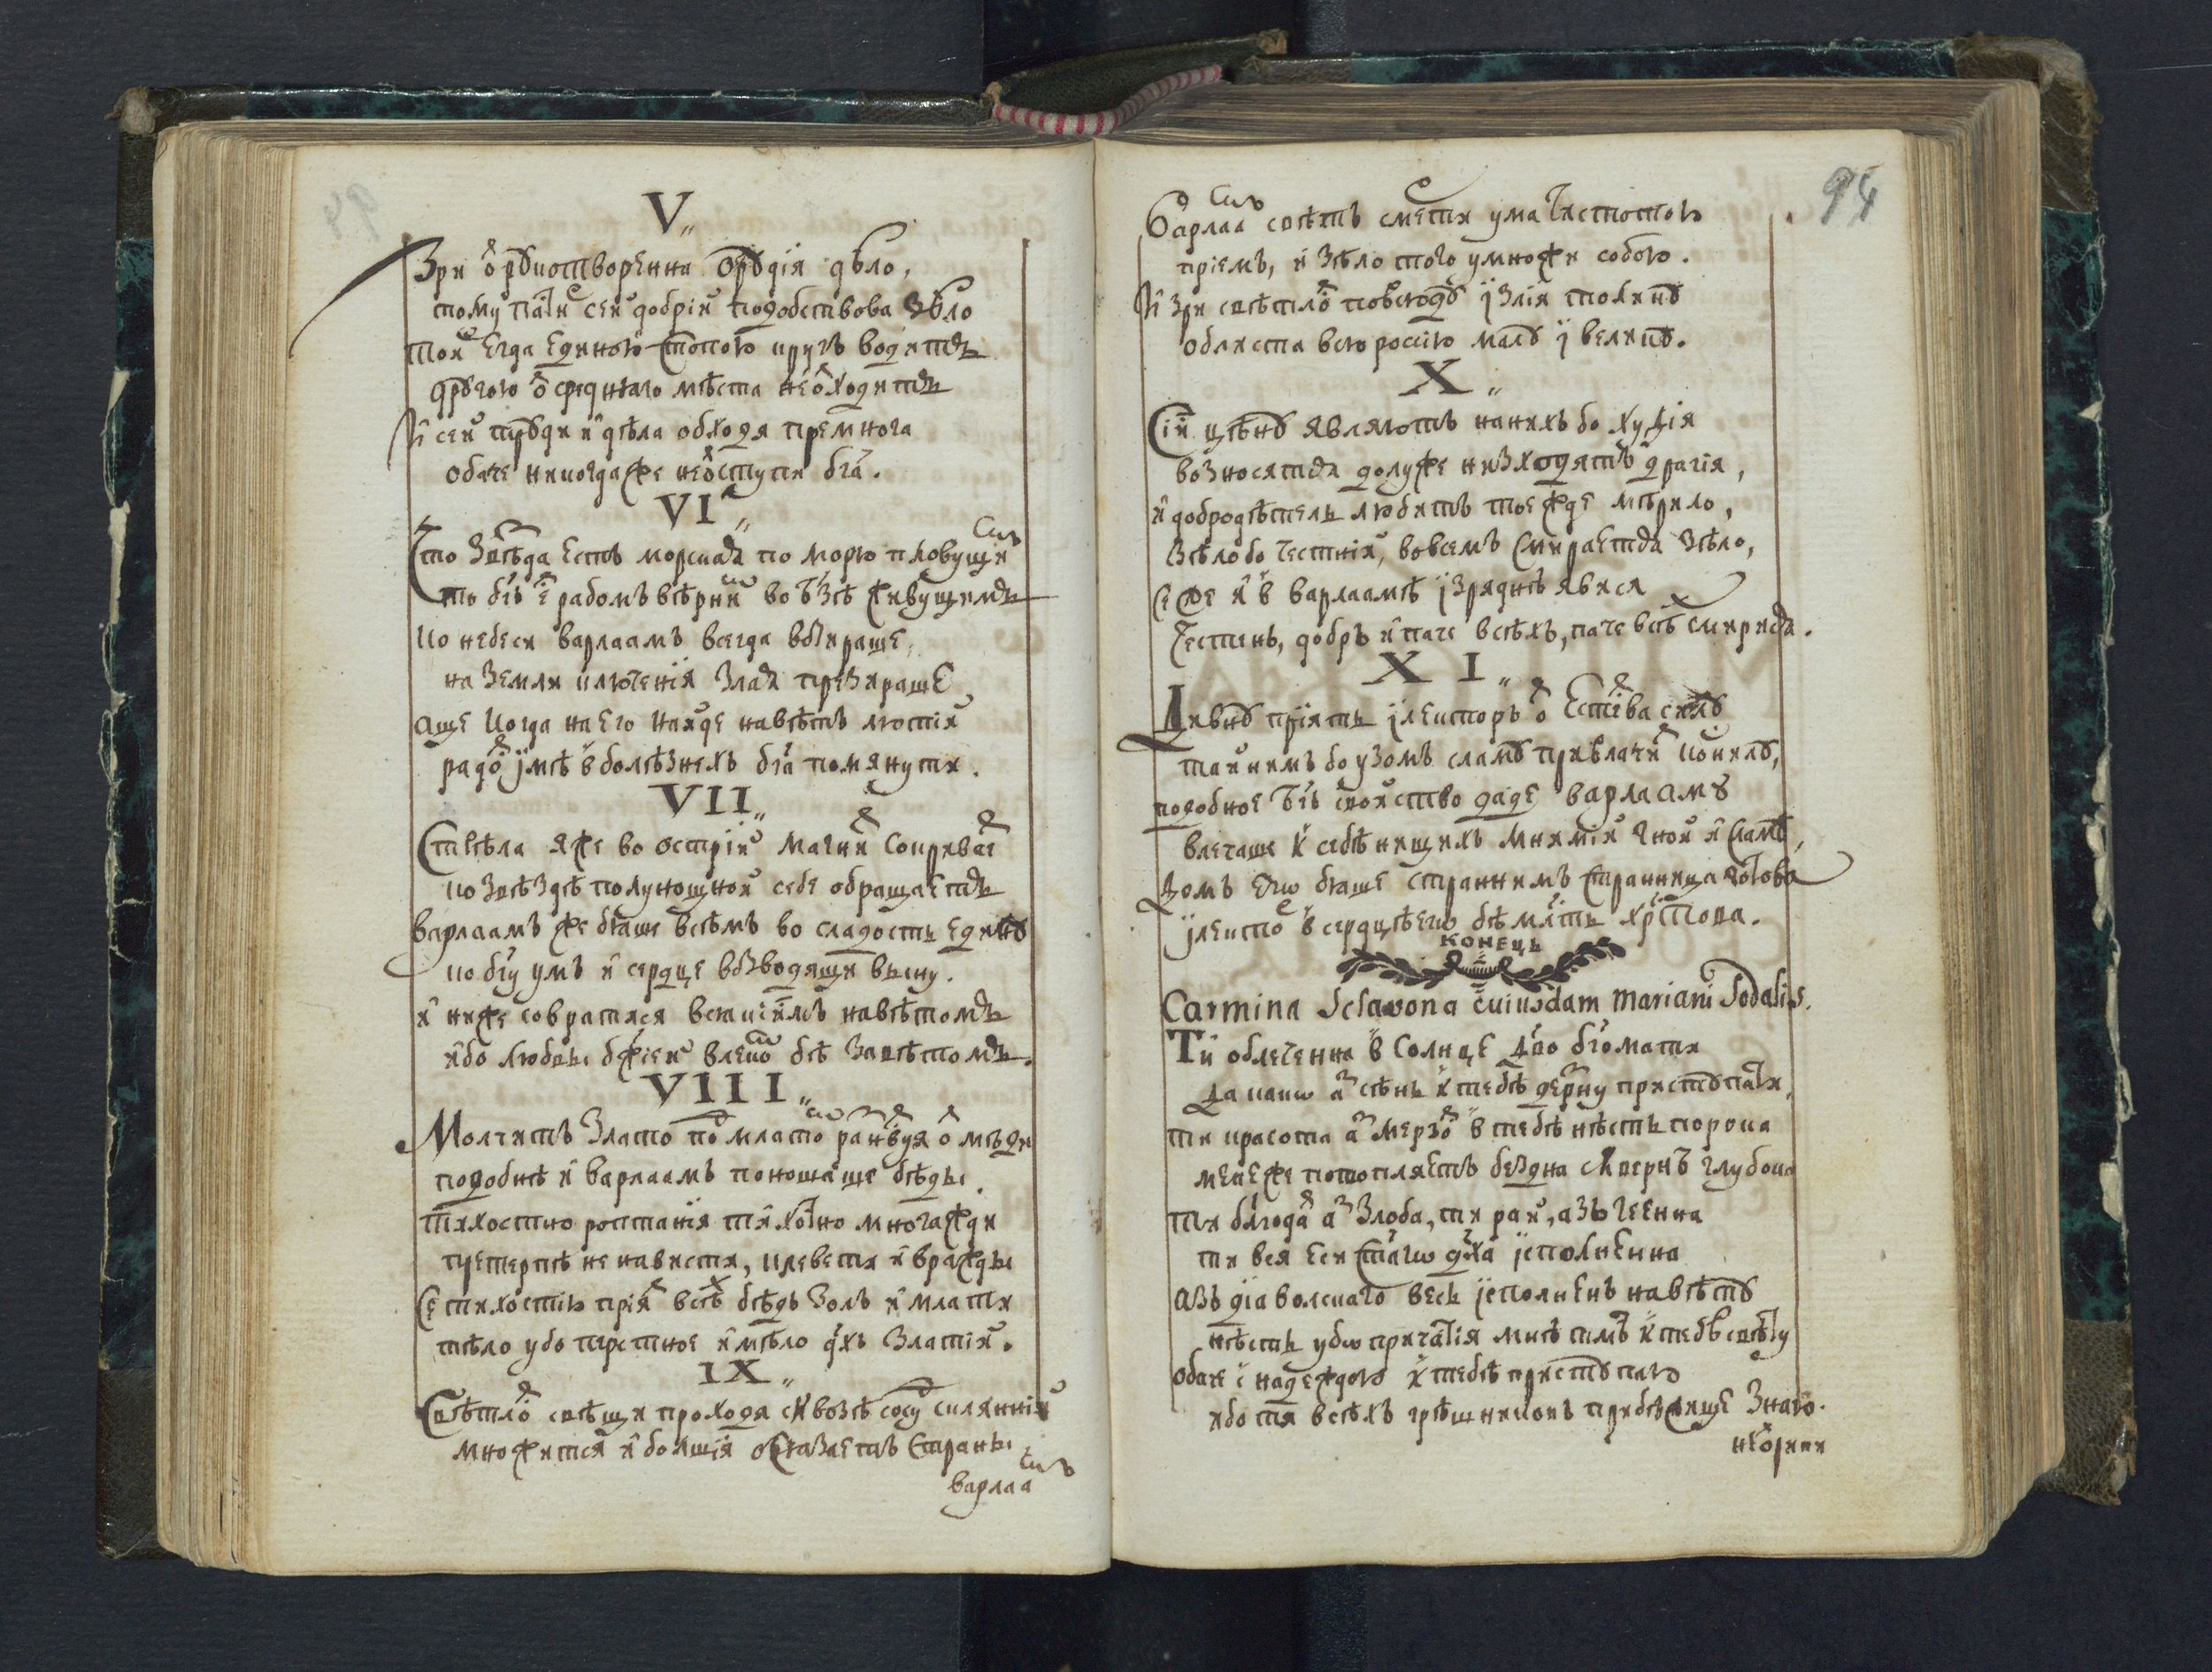 V„
Зри ѻ рꙋкотворенна ѻрꙋдїя дѣло,
тому паки сей добрїй подобствова зѣло
Той егда единою стопою кругъ водитъ
дрꙋгою ѿ среднѧго мѣста не ѿходитъ
И сей трꙋди и дѣла обходя премнога
обаче никогдаже не ѿступи бг҃а.
VI„
Что звѣзда есть морскаѧ по морю пловущимъ
то бг҃ъ е рабомъ вѣрним во бг҃ѣ живущимъ
ко небеси варлаамъ всегда взираше,
на земли плюченїя злаѧ презираше
аще когда на его найде навѣтъ лютїй
радо имѣ в болѣзнехъ бг҃а помянути.
VII„
Стрѣла яже во острїй магни сокривае
ко звѣздѣ полунощной себе обращаетъ
варлаамъ же бѧше всѣмъ во сладость единꙋ
ко бг҃у умъ и сердце возводящи выну.
и ниже совратися всякимъ навѣтомъ
ибо любвы бж҃іей влеком бѣ завѣтомъ.
VIII„
Молчитъ злато по млатом раннꙋя ѿ мѣди
подобнѣ и варлаамъ поношаше бѣды.
тихостно роптанїя тихотно многажди
претерпѣ ненависти, клевети и вражды
Се тихостїю прїя всѣх бѣдъ золъ и млати
тѣло убо перстное имѣло дх҃ъ златїй.
IX„
Свѣтло свѣщи проходя сквозѣ сосу силяннїй
множится и болшїя ѡсвѧзаетъ страны.
варлаамъ
94
Варлаамъ свѣтъ смети ума чистотою
прїемъ, и зѣло того умножи собою.
И зри свѣтло повсюдꙋ изліѧ толикꙋ
облиста всю россїю малꙋ и великꙋ.
X„
Сїи цѣнꙋ являютъ на нихъ бо худїя
возносятъ долуже низходятъ драгїя,
и добродѣтель любитъ тоежде мѣрило,
Зѣло бо честнїй, вовсемъ смираетъ зѣло,
Се же и в варлаамѣ изряднѣ явися
Честенъ, добръ и паче всѣхъ, паче всѣх смирися.
XI„
Дивнꙋ прїятъ илекторъ ѿ естества силꙋ
тайнимъ бо узомъ сламꙋ привлачи ко нилꙋ,
подобное бг҃ъ свойство даде варлаамꙋ
влечаше к себѣ нищихъ мнимїй гной и сламꙋ,
Домъ его бяше страннимъ странница готова
илекто в сердцѣ его бѣ млсть хрстова.
КОНЕЦЬ
Carmina Sclavona cuiusdam Mariani Sodalis.
Ти облеченна в солнце дв҃о бг҃омати
Да како аз сѣнь к тебѣ дерзну приступати,
ти красота аз мерзо в тебѣ нѣсть порока
мене же потопляетъ бездна сквернъ глубока
ти блг҃ода аз злоба, ти рай, азъ геенна
ти вся еси стаго дх҃а исполненна
азъ дїаволскаго весь исполненъ навѣтꙋ
нѣсть убо причастїя мнѣ тмѣ к тебѣ свѣту
обаче с надеждою к тебѣ приступаю
ибо тя всѣхъ грѣшниковъ прибѣжище знаю.
не ѿрини